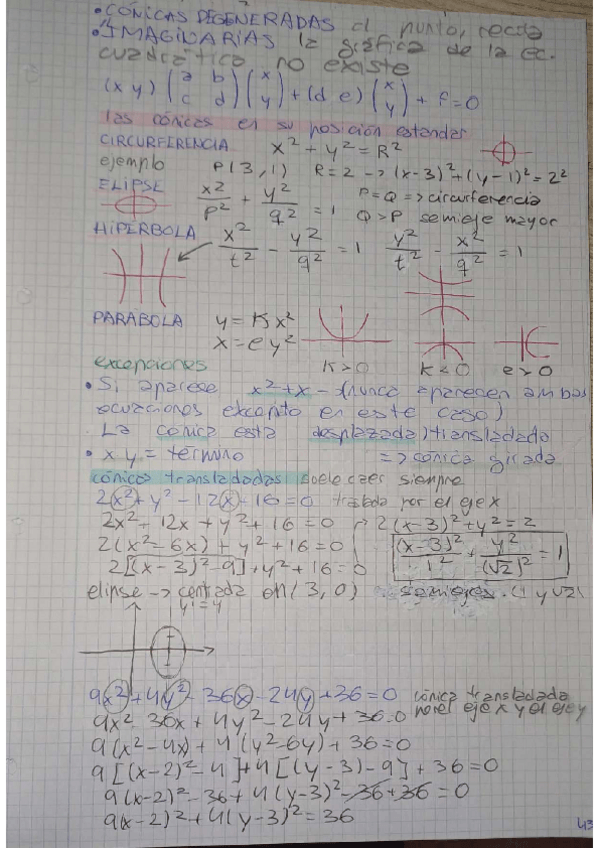 • CÓNICAS DEGENERADAS el punto, recta
• IMAGINARIAS la gráfica de la ec.
cuadrática no existe
(x y) (a b c d) (x y) + (d e) (x y) + f = 0
las cónicas en su posición estandar
CIRCURFERENCIA x² + y² = R²
ejemplo P(3,1) R=2 -> (x-3)²+(y-1)²=2²
ELIPSE x²/p² + y²/q² = 1 P=Q => circurferencia
Q>P semieje mayor
HIPÉRBOLA x²/t² - y²/q² = 1 y²/t² - x²/q² = 1
PARÁBOLA y = Kx²
x = ey²
K>0 K<0 e>0
excepciones
• Si aparese x²+x - (nunca aparecen ambos
ecuaciones excepto en este caso)
La cónica esta desplazada/transladado
• xy = término => cónica girada
cónicas transladadas suele caer siempre
2x²+y²-12x-16=0 traslada por el eje x
2x²-12x+y²+16=0
2(x²-6x)+y²+16=0
2[(x-3)²-9]+y²+16=0
2(x-3)²+y²=2
(x-3)²/1² + y²/(√2)² = 1
elipse -> centrada en (3,0) semiejes (1 y √2)
y'=y
9x²+4y²-36x-24y+36=0 cónica transladada
por el eje x y el eje y
9x² 36x+4y²-24y+36=0
9(x²-4x)+4(y²-6y)+36=0
9[(x-2)²-4]+4[(y-3)-9]+36=0
9(x-2)²-36+4(y-3)²-36+36=0
9(x-2)²+4(y-3)²=36
43